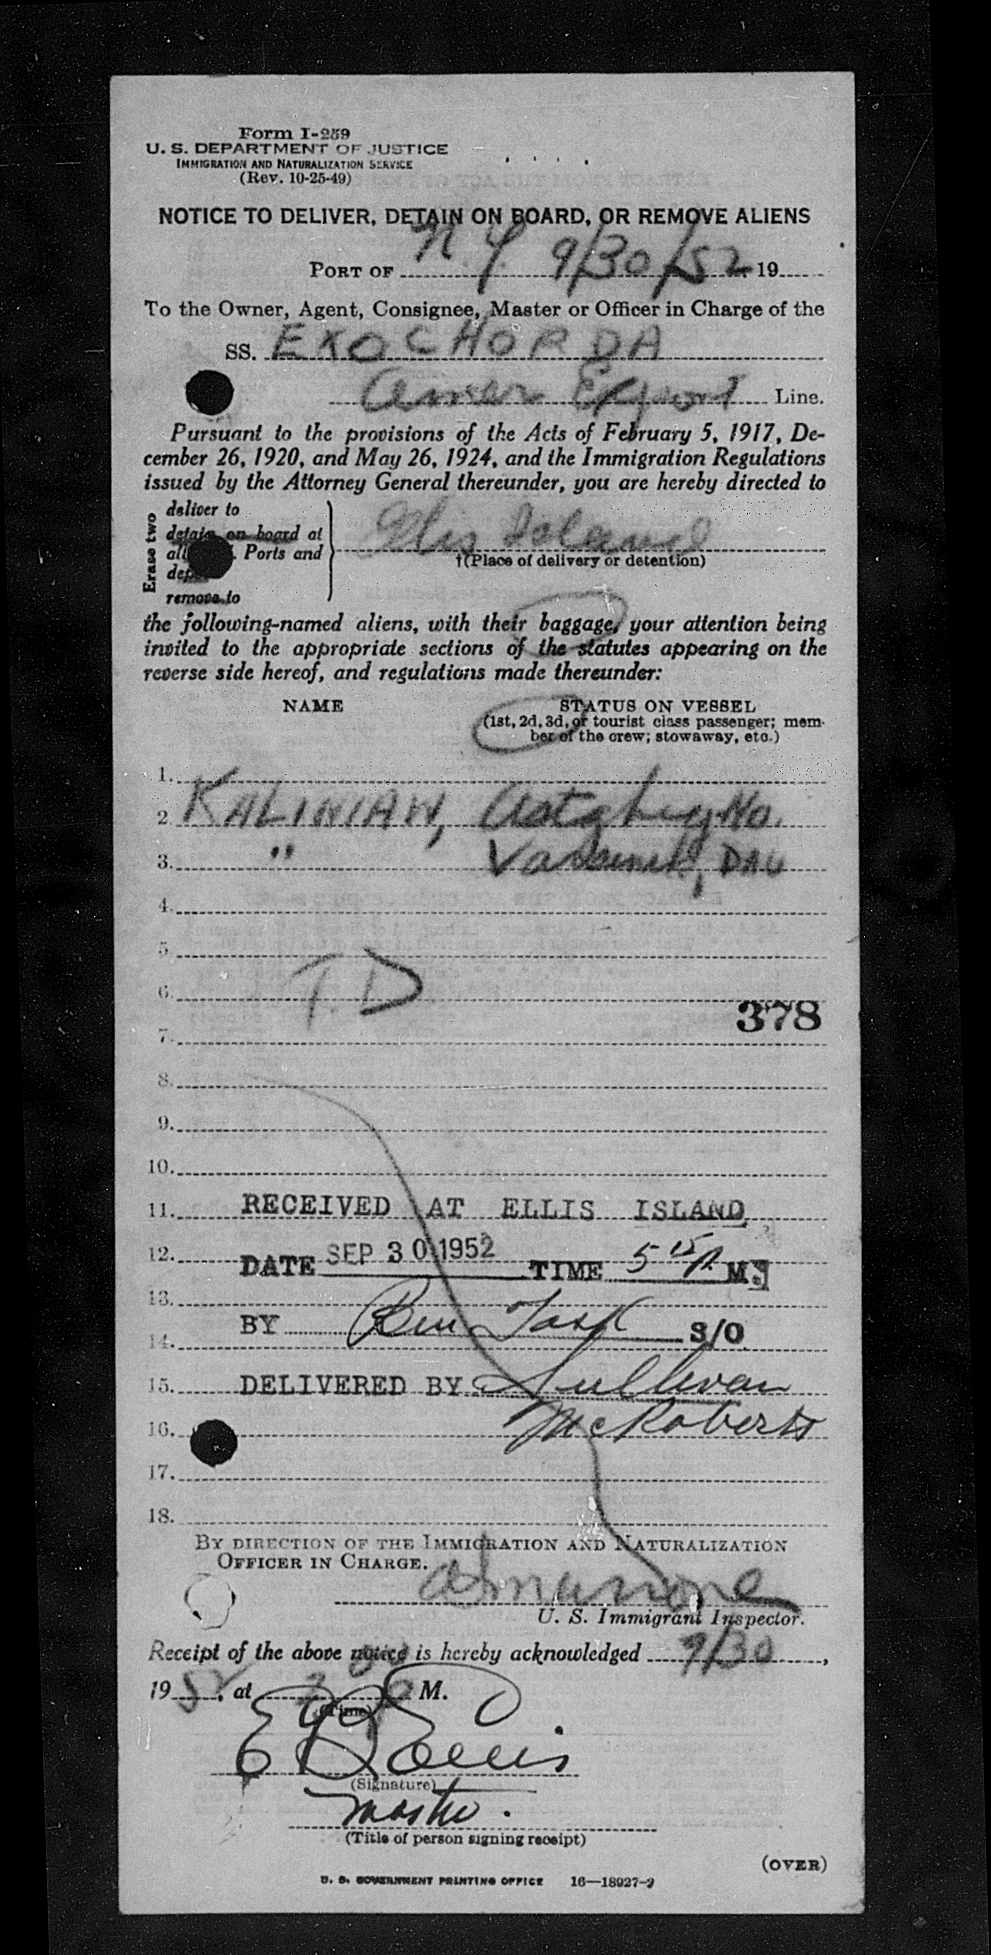 Form I-259
U. S. DEPARTMENT OF JUSTICE
IMMIGRATION AND NATURALIZATION SERVICE
(Rev. 10-25-49)
NOTICE TO DELIVER, DETAIN ON BOARD, OR REMOVE ALIENS
PORT OF N Y 9/30/52 19
To the Owner, Agent, Consignee, Master or Officer in Charge of the
SS. EXOCHORDA
Amer Export Line.
Pursuant to the provisions of the Acts of February 5, 1917, De-
cember 26, 1920, and May 26, 1924, and the Immigration Regulations
issued by the Attorney General thereunder, you are hereby directed to
Erase two
deliver to
detain on board at
all Ports and
remove to
Ellis Island
†(Place of delivery or detention)
the following-named aliens, with their baggage, your attention being
invited to the appropriate sections of the statutes appearing on the
reverse side hereof, and regulations made thereunder:
NAME STATUS ON VESSEL
(1st, 2d, 3d, or tourist class passenger; mem-
ber of the crew; stowaway, etc.)
1.
2. KALINIAN, Astghig
3. " DAU
4.
5.
6. T. D
378
7.
8.
9.
10.
11. RECEIVED AT ELLIS ISLAND
12. DATE SEP 30 1952 TIME 5 15 P M.
13.
BY Ben Task S/O
14.
15. DELIVERED BY Sullivan
16. McRoberts
17.
18.
BY DIRECTION OF THE IMMIGRATION AND NATURALIZATION
OFFICER IN CHARGE.
U. S. Immigrant Inspector.
Receipt of the above notice is hereby acknowledged 9/30,
1952, at M.
(Time)
(Signature)
Master.
(Title of person signing receipt)
(OVER)
U. S. GOVERNMENT PRINTING OFFICE 16—18927-2